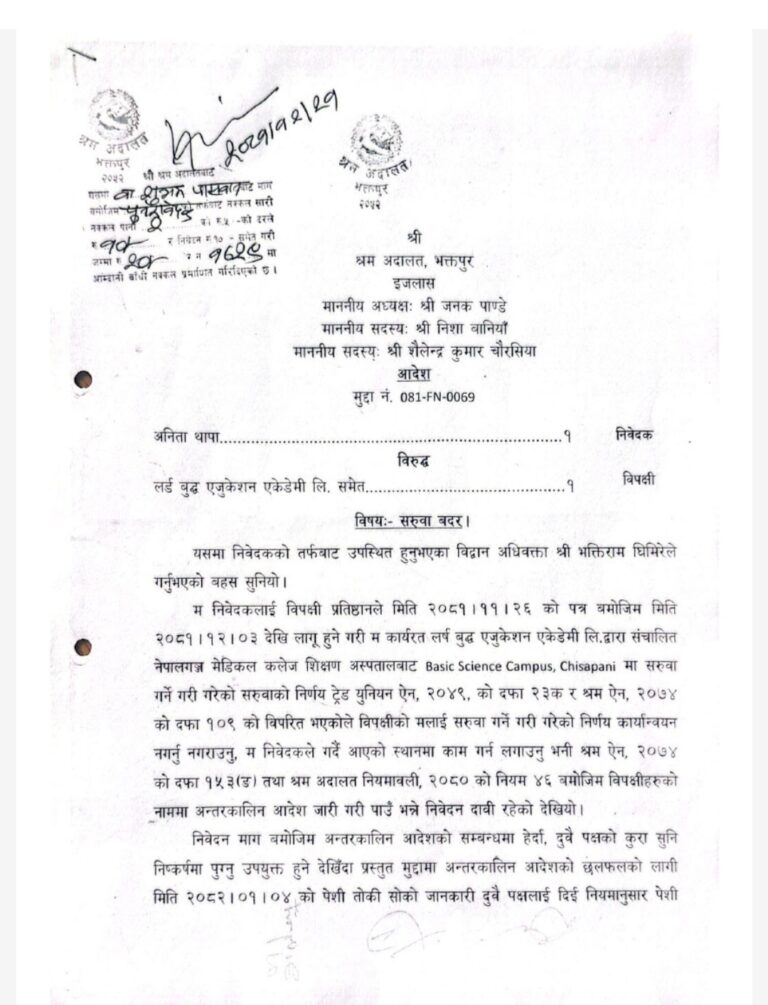 २०८१/१२/२१
श्रम अदालत
भक्तपुर
२०५२
श्रम अदालत
भक्तपुर
२०५२
श्री श्रम अदालतबाट
नक्कल प्रमाणित गरिदिएको छ।
श्री
श्रम अदालत, भक्तपुर
इजलास
माननीय अध्यक्षः श्री जनक पाण्डे
माननीय सदस्यः श्री निशा वानियाँ
माननीय सदस्यः श्री शैलेन्द्र कुमार चौरसिया
आदेश
मुद्दा नं. 081-FN-0069
अनिता थापा..........................................................................१ निवेदक
विरुद्ध
लर्ड बुद्ध एजुकेशन एकेडेमी लि. समेत...........................................१ विपक्षी
विषयः- सरुवा बदर।
यसमा निवेदकको तर्फबाट उपस्थित हुनुभएका विद्वान अधिवक्ता श्री भक्तिराम घिमिरेले
गर्नुभएको बहस सुनियो।
म निवेदकलाई विपक्षी प्रतिष्ठानले मिति २०८१।११।२६ को पत्र बमोजिम मिति
२०८१।१२।०३ देखि लागू हुने गरी म कार्यरत लर्ष बुद्ध एजुकेशन एकेडेमी लि.द्वारा संचालित
नेपालगञ्ज मेडिकल कलेज शिक्षण अस्पतालबाट Basic Science Campus, Chisapani मा सरुवा
गर्ने गरी गरेको सरुवाको निर्णय ट्रेड युनियन ऐन, २०४९, को दफा २३क र श्रम ऐन, २०७४
को दफा १०९ को विपरित भएकोले विपक्षीको मलाई सरुवा गर्ने गरी गरेको निर्णय कार्यान्वयन
नगर्नु नगराउनु, म निवेदकले गर्दै आएको स्थानमा काम गर्न लगाउनु भनी श्रम ऐन, २०७४
को दफा १५३(ङ) तथा श्रम अदालत नियमावली, २०८० को नियम ४६ बमोजिम विपक्षीहरुको
नाममा अन्तरकालिन आदेश जारी गरी पाउँ भन्ने निवेदन दावी रहेको देखियो।
निवेदन माग बमोजिम अन्तरकालिन आदेशको सम्बन्धमा हेर्दा, दुवै पक्षको कुरा सुनि
निष्कर्षमा पुग्नु उपयुक्त हुने देखिँदा प्रस्तुत मुद्दामा अन्तरकालिन आदेशको छलफलको लागी
मिति २०८२।०१।०४ को पेशी तोकी सोको जानकारी दुबै पक्षलाई दिई नियमानुसार पेशी